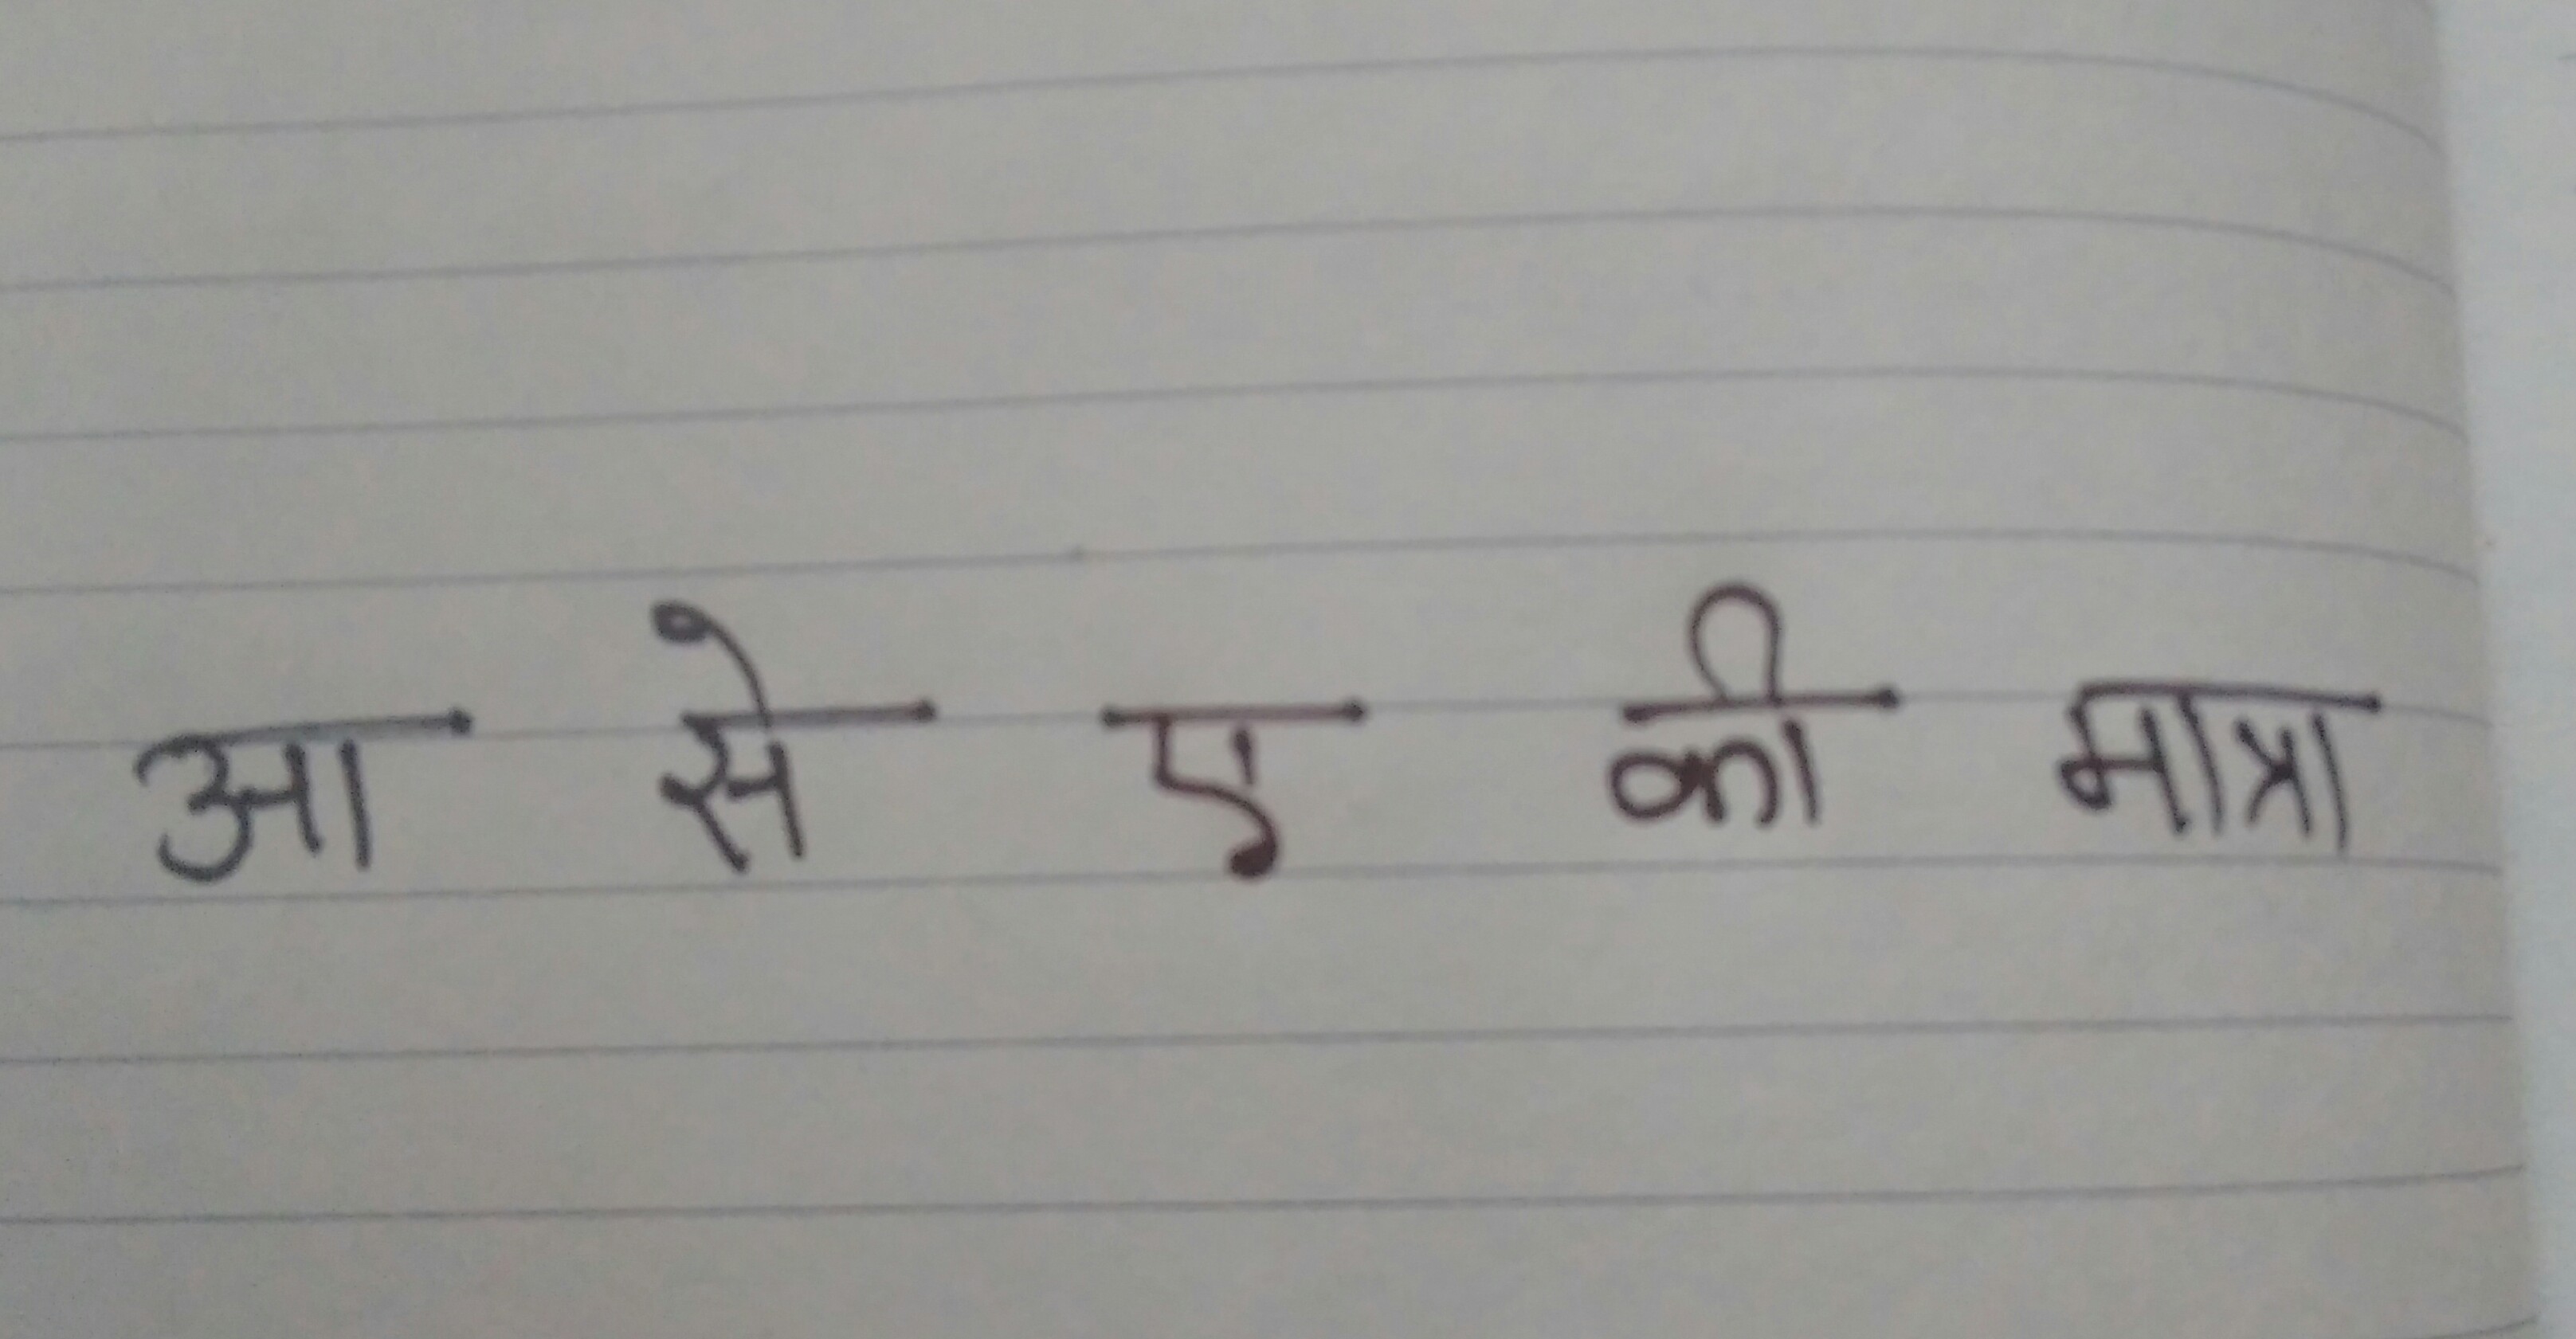 आ से ए की मात्रा